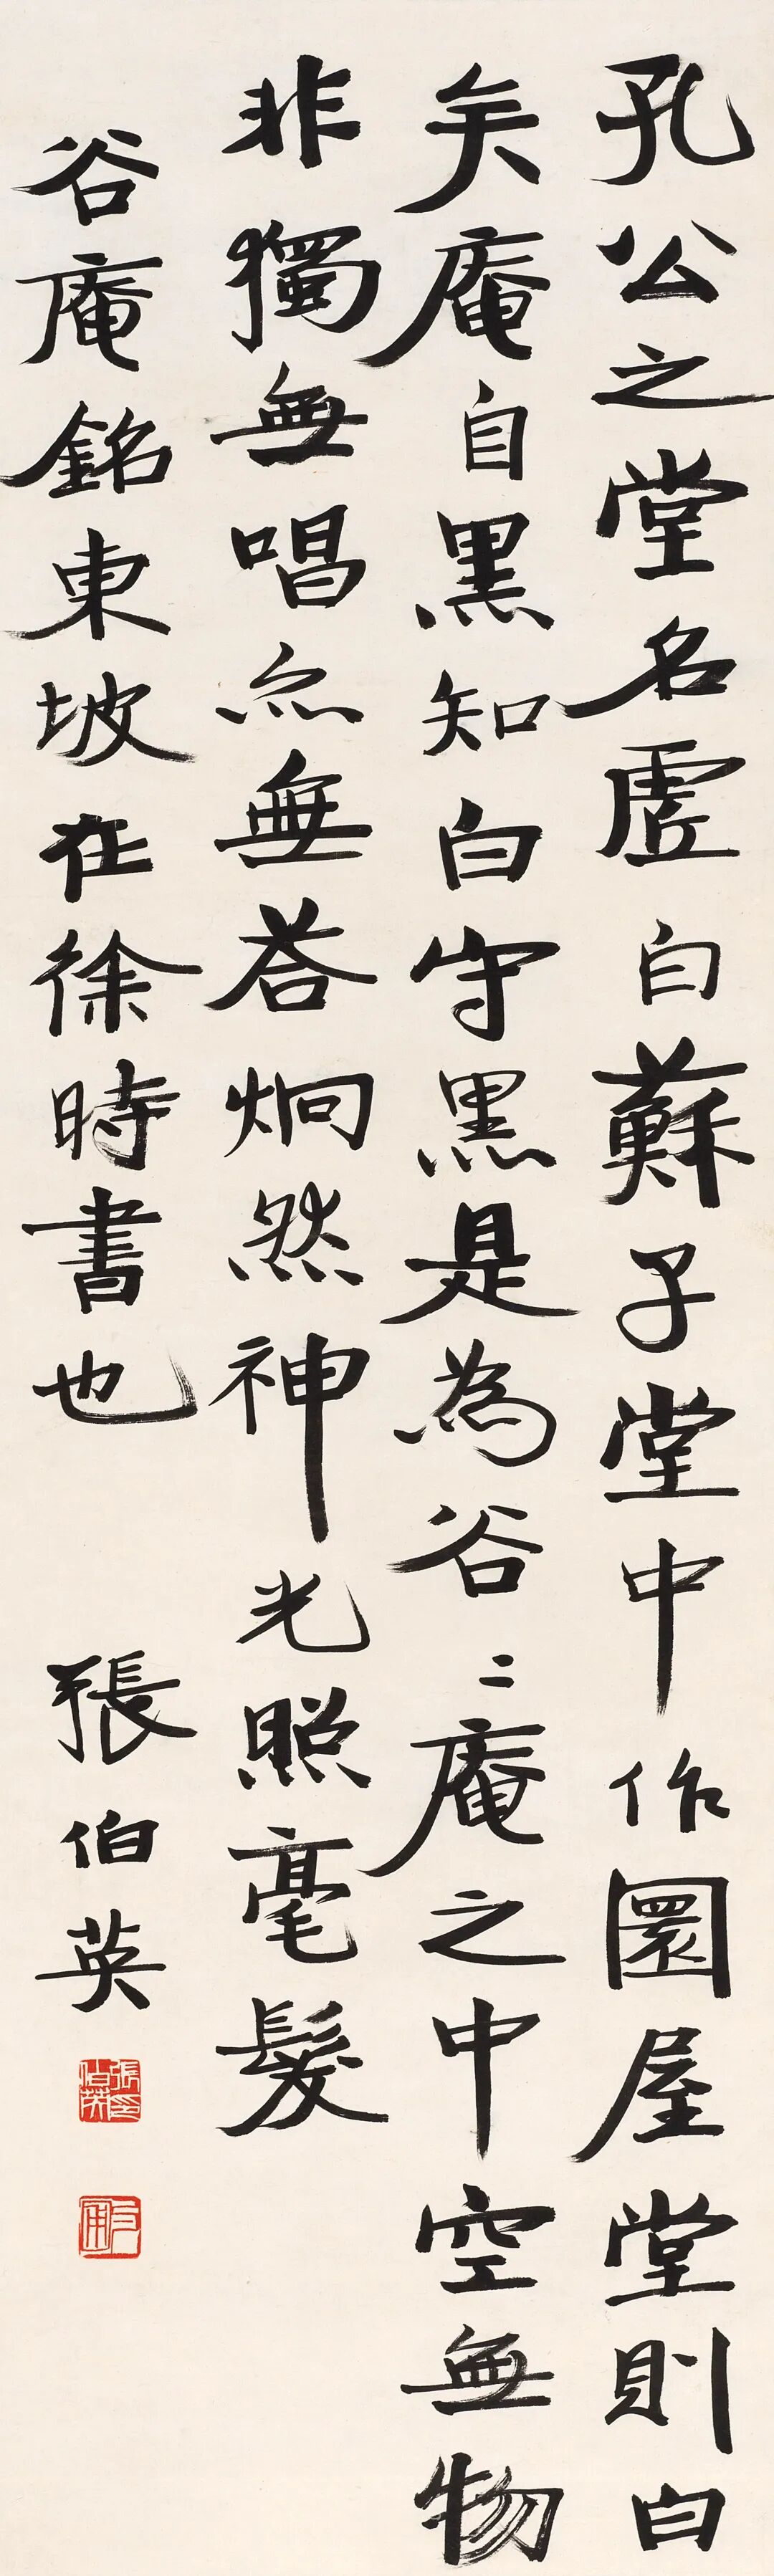 孔公之堂名虛白蘇子堂中作圜屋堂則白
矣庵自黑知白守黑是為谷二庵之中空無物
非獨無唱亦無荅炯然神光照毫髮
谷庵銘東坡在徐時書也
張伯英
張伯英印